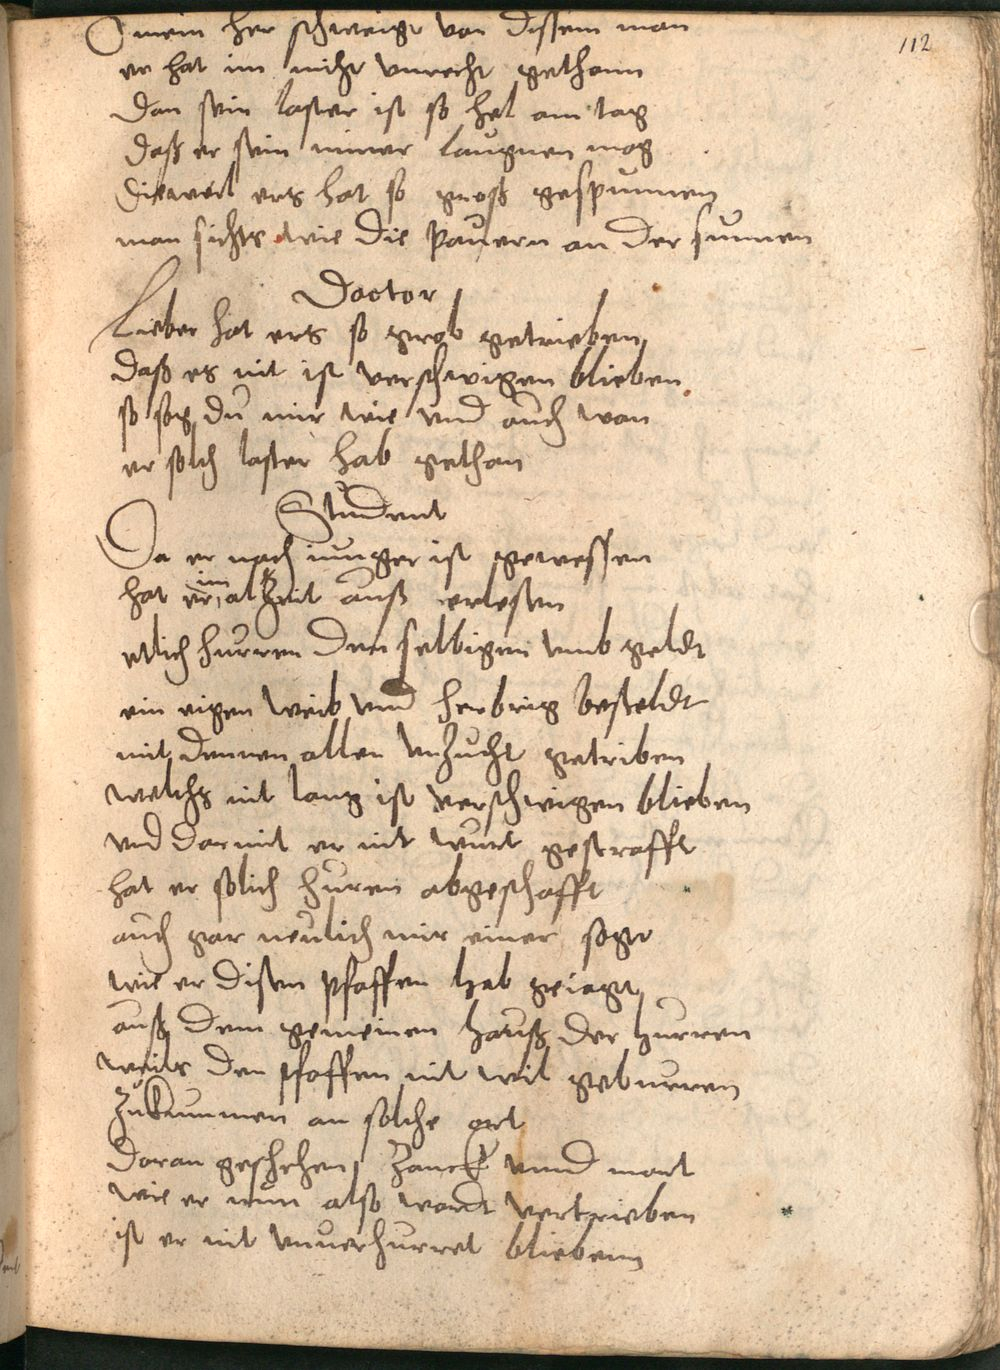 112
O mein her schweigt von dissem man
er hat im nicht vnrecht gethonn
Dan sein laster ist so hel am tag
daß er sein nimer laugnen mog
Dieweil ers hat so groß gespunnen
man sichts wie die pauern an der sunnen
Doctor
Lieber hat ers so grob getrieben
daß es nit ist verschwigen blieben
so sag du mir wie vnd auch wan
er solch laster hab gethan
Student
Da er noch iunger ist gewessen
hat er im alzeit auß erlesen
etlich hurren den selbigen vmb geldt
ein eigen weib vnd herbrig besteldt
mit dennen allen vnzucht getriben
welchs nit lang ist verschwigen blieben
vnd darmit er nit wurt gestrafft
hat er solich huren abgeschafft
auch gar neulich mir einer sagt
wie er disen pfaffen hab geiagt
auß dem gemeinen hauß der hurren
weils den pfaffen nit wil geburren
zukummen an solche ort
daran geschehen zanck vnnd mort
wie er nun also wardt vertrieben
ist er nit vnuerhurret bliebenn